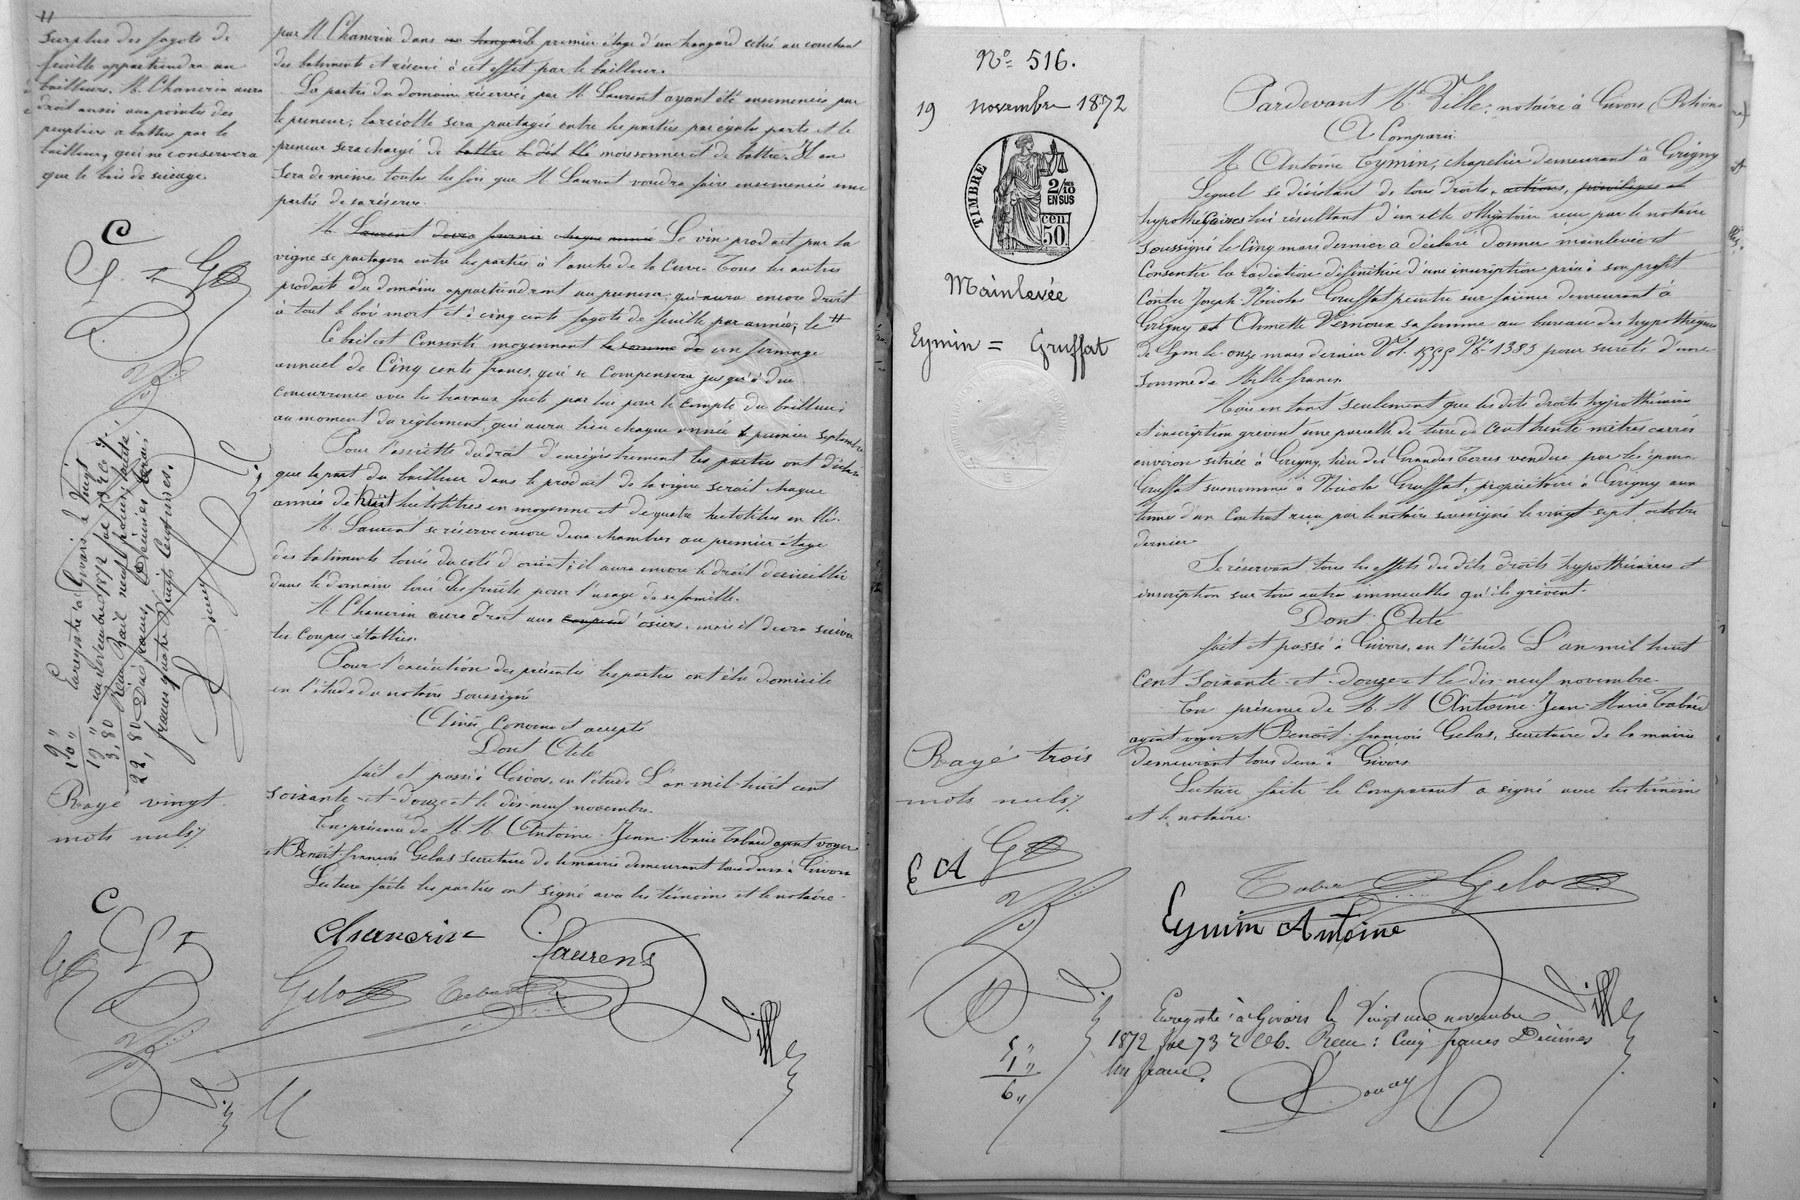 surplus des fagots de
feuille appartiendra au
bailleur. M. Chancrin aura
droit aussi aux pointes des
peupliers abattus par le
bailleur, qui ne conservera
que le bois de sciage.
Enregistré à Givors le vingt
un novembre 1872
Reçu Bail neuf francs
Dix francs, Décimes
francs quatre vingt centimes.
Douay
9 "
10 "
19 "
3,80
22,80
Rayé vingt
mots nuls
par M. Chancrin dans un hangard le premier étage d'un hangard situé au couchant
des batiments et réservé à cet effet par le bailleur.
La partie du domaine réservée par M. Laurent ayant été ensemencée par
le preneur, la récolte sera partagée entre les parties par égales parts et le
preneur sera chargé de battre le dit blé moissonner et de battre. Il en
sera de même toutes les fois que M. Laurent voudra faire ensemencer une
partie de sa réserve.
M. Laurent devra fournir chaque année Le vin produit par la
vigne se partagera entre les parties à l'anche de la cuve. Tous les autres
produits du domaine appartiendront au preneur, qui aura encore droit
à tout le bois mort et à cinq cents fagots de feuille par année, le #
Ce bail est consenti moyennant la somme de un fermage
annuel de Cinq cents francs, qui se compensera jusqu'à due
concurrence avec les travaux faits par lui pour le compte du bailleur
au moment du règlement, qui aura lieu chaque année le premier septembre
Pour l'assiette du droit d'enregistrement les parties ont déclaré
que la part du bailleur dans le produit de la vigne serait chaque
année de huit hectolitres en moyenne et de quatre hectolitres en blé.
M. Laurent se réserve encore deux chambres au premier étage
des batiments loués du coté d'orient; il aura encore le droit de cueillir
dans le domaine loué des fruits pour l'usage de sa famille.
M. Chancrin aura droit aux coupes d'osiers, mais il devra suivre
les coupes établies.
Pour l'exécution des présentes les parties ont élu domicile
en l'étude du notaire soussigné
Ainsi convenu et accepté
Dont Acte
fait et passé à Givors, en l'étude L'an mil huit cent
soixante-et-douze et le dix-neuf novembre.
En présence de M.M. Antoine-Jean-Marie Tabard agent voyer
et Benoît-françois Gelas secrétaire de la mairie demeurant tous deux à Givors
Lecture faite les parties ont signé avec les témoins et le notaire.
Chancrin
Laurent
Gelas
Tabard
Ville
N° 516.
19 novembre 1872
TIMBRE
2/10
EN SUS
cen
50
Mainlevée
Eymin = Gruffat
Rayé trois
mots nuls
E A
5 "
1 "
6 "
Pardevant Me Ville, notaire à Givors (Rhône
A Comparu
M. Antoine Eymin, chapelier demeurant à Grigny
Lequel se désistant de tous droits, actions, privilèges et
hypothécaires lui résultant d'un acte obligatoire reçu par le notaire
soussigné le cinq mars dernier a déclaré donner mainlevée et
consentir la radiation définitive d'une inscription prise à son profit
contre Joseph-Nicolas Gruffat peintre sur faïence demeurant à
Grigny et Annette Vernoux sa femme au bureau des hypothèques
de Lyon le onze mars dernier Vol. N° 1383 pour sureté d'une
somme de Mille francs.
Mais en tant seulement que les dits droits hypothécaires
et inscription grèvent une parcelle de terre de cent trente mètres carrés
environ située à Grigny, lieu des Grandes Terres vendue par les époux
Gruffat susnommés à Nicolas Gruffat, propriétaire à Grigny aux
termes d'un contrat reçu par le notaire soussigné le vingt sept octobre
dernier
Se réservant tous les effets des dits droits hypothécaires et
inscription sur tous autres immeubles qu'ils grèvent.
Dont Acte
fait et passé à Givors, en l'étude L'an mil huit
cent soixante-et-douze et le dix-neuf novembre
En présence de M.M. Antoine-Jean-Marie Tabard
agent voyer et Benoît-françois Gelas, secrétaire de la mairie
demeurant tous deux à Givors
Lecture faite le comparant a signé avec les témoins
et le notaire.
Tabard
Gelas
Eymin Antoine
Ville
Enregistré à Givors le Vingt un novembre
1872 fol 73 r Cc6. Reçu: Cinq francs Décimes
Un franc.
Douay